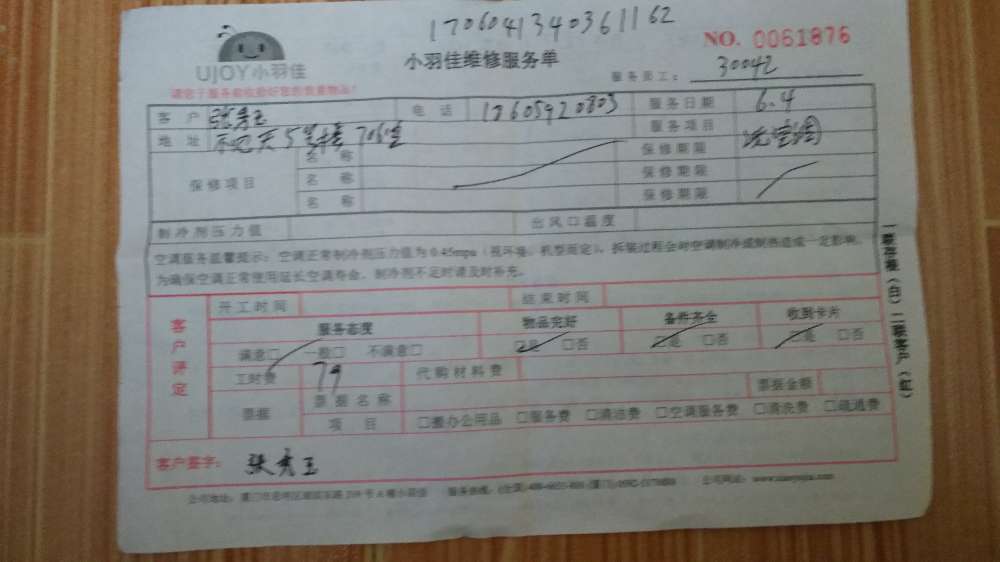 17060413403611162
UJOY小羽佳
小羽佳维修服务单
NO. 0061876
请您于服务前收捡好您的贵重物品!
服务员工: 30042
客户 张秀玉 电话 服务日期 6.4
地址 5号楼 服务项目 洗空调
保修项目 名称 保修期限
名称 保修期限
名称 保修期限
制冷剂压力值 出风口温度
空调服务温馨提示:空调正常制冷剂压力值为0.45mpa(视环境、机型而定),拆装过程会对空调制冷或制热造成一定影响,
为确保空调正常使用延长空调寿命,制冷剂不足时请及时补充。
一联存根(白)二联客户(红)
客户评定
开工时间 结束时间
服务态度 物品完好 备件齐全 收到卡片
满意□ 一般□ 不满意□ □是 □否 □是 □否 □是 □否
工时费 79 代购材料费
票据 票据名称 票据金额
项目 □搬办公用品 □服务费 □清洁费 □空调服务费 □清洗费 □疏通费
客户签字: 张秀玉
公司地址: 服务热线: 公司网站: